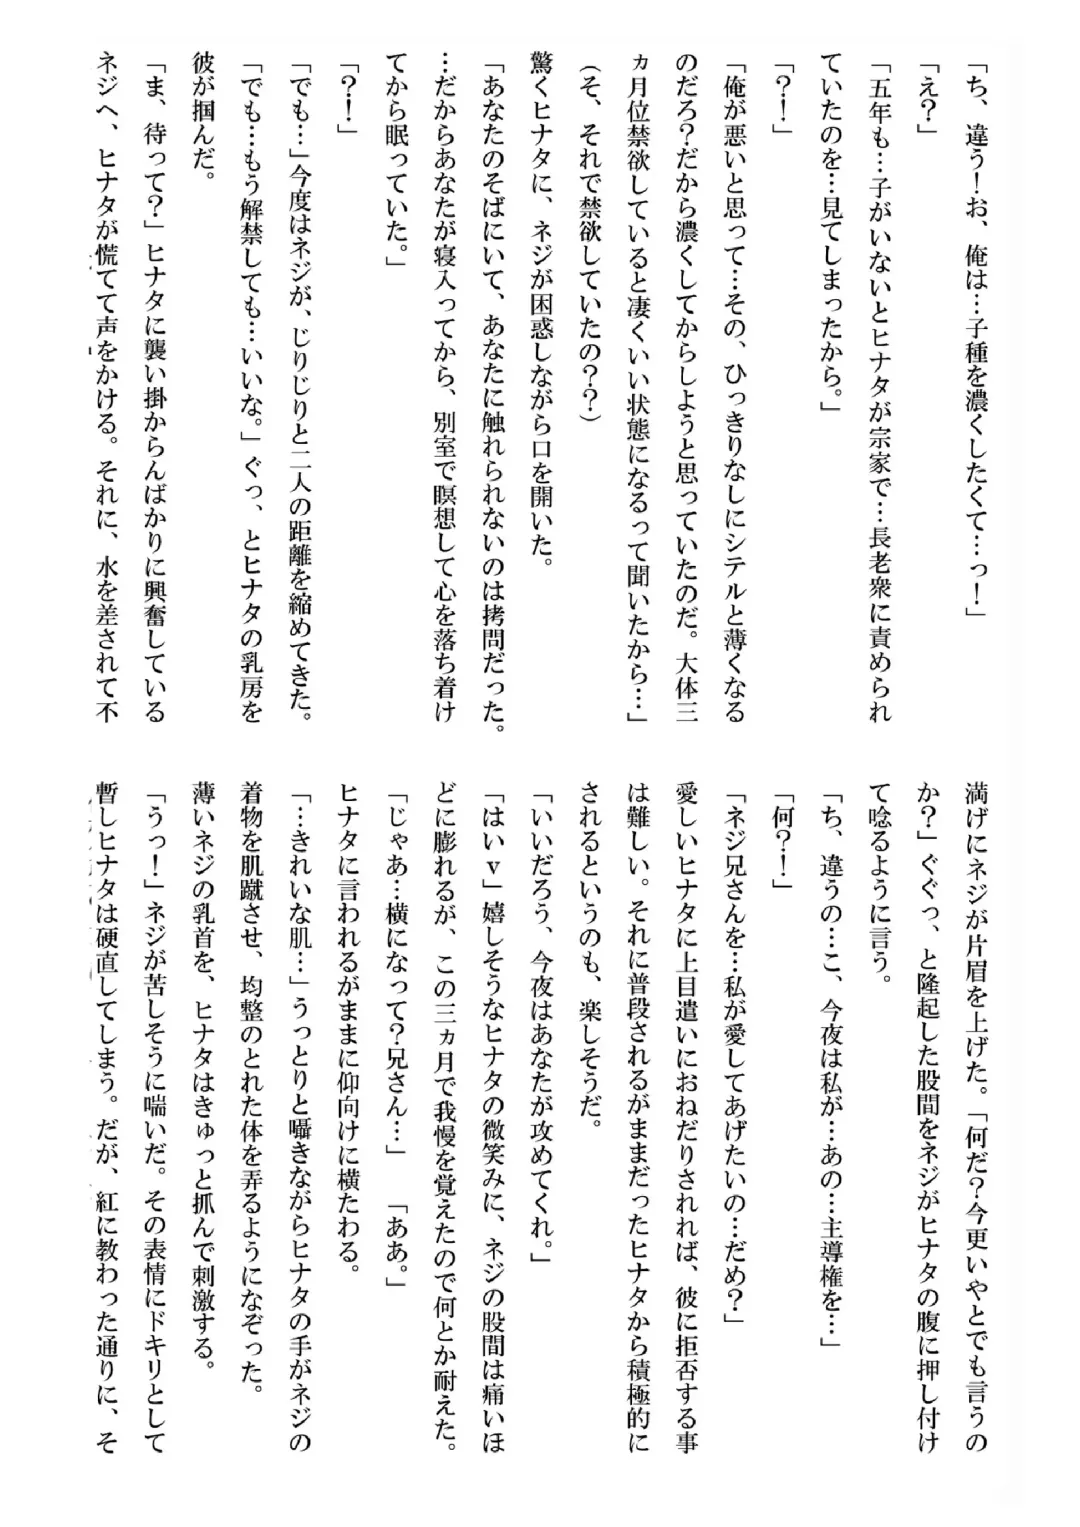 「ち、違う！お、俺は…子種を濃くしたくて…っ！」
「え？」
「五年も…子がいないとヒナタが宗家で…長老衆に責められ
ていたのを…見てしまったから。」
「？！」
「俺が悪いと思って…その、ひっきりなしにシテルと薄くなる
のだろ？だから濃くしてからしようと思っていたのだ。大体三
ヵ月位禁欲していると凄くいい状態になるって聞いたから…」
（そ、それで禁欲していたの？？）
驚くヒナタに、ネジが困惑しながら口を開いた。
「あなたのそばにいて、あなたに触れられないのは拷問だった。
…だからあなたが寝入ってから、別室で瞑想して心を落ち着け
てから眠っていた。」
「？！」
「でも…」今度はネジが、じりじりと二人の距離を縮めてきた。
「でも…もう解禁しても…いいな。」ぐっ、とヒナタの乳房を
彼が掴んだ。
「ま、待って？」ヒナタに襲い掛からんばかりに興奮している
ネジへ、ヒナタが慌てて声をかける。それに、水を差されて不
満げにネジが片眉を上げた。「何だ？今更いやとでも言うの
か？」ぐぐっ、と隆起した股間をネジがヒナタの腹に押し付け
て唸るように言う。
「ち、違うの…こ、今夜は私が…あの…主導権を…」
「何？！」
「ネジ兄さんを…私が愛してあげたいの…だめ？」
愛しいヒナタに上目遣いにおねだりされれば、彼に拒否する事
は難しい。それに普段されるがままだったヒナタから積極的に
されるというのも、楽しそうだ。
「いいだろう、今夜はあなたが攻めてくれ。」
「はいｖ」嬉しそうなヒナタの微笑みに、ネジの股間は痛いほ
どに膨れるが、この三ヵ月で我慢を覚えたので何とか耐えた。
「じゃあ…横になって？兄さん…」　「ああ。」
ヒナタに言われるがままに仰向けに横たわる。
「…きれいな肌…」うっとりと囁きながらヒナタの手がネジの
着物を肌蹴させ、均整のとれた体を弄るようになぞった。
薄いネジの乳首を、ヒナタはきゅっと抓んで刺激する。
「うっ！」ネジが苦しそうに喘いだ。その表情にドキリとして
暫しヒナタは硬直してしまう。だが、紅に教わった通りに、そ